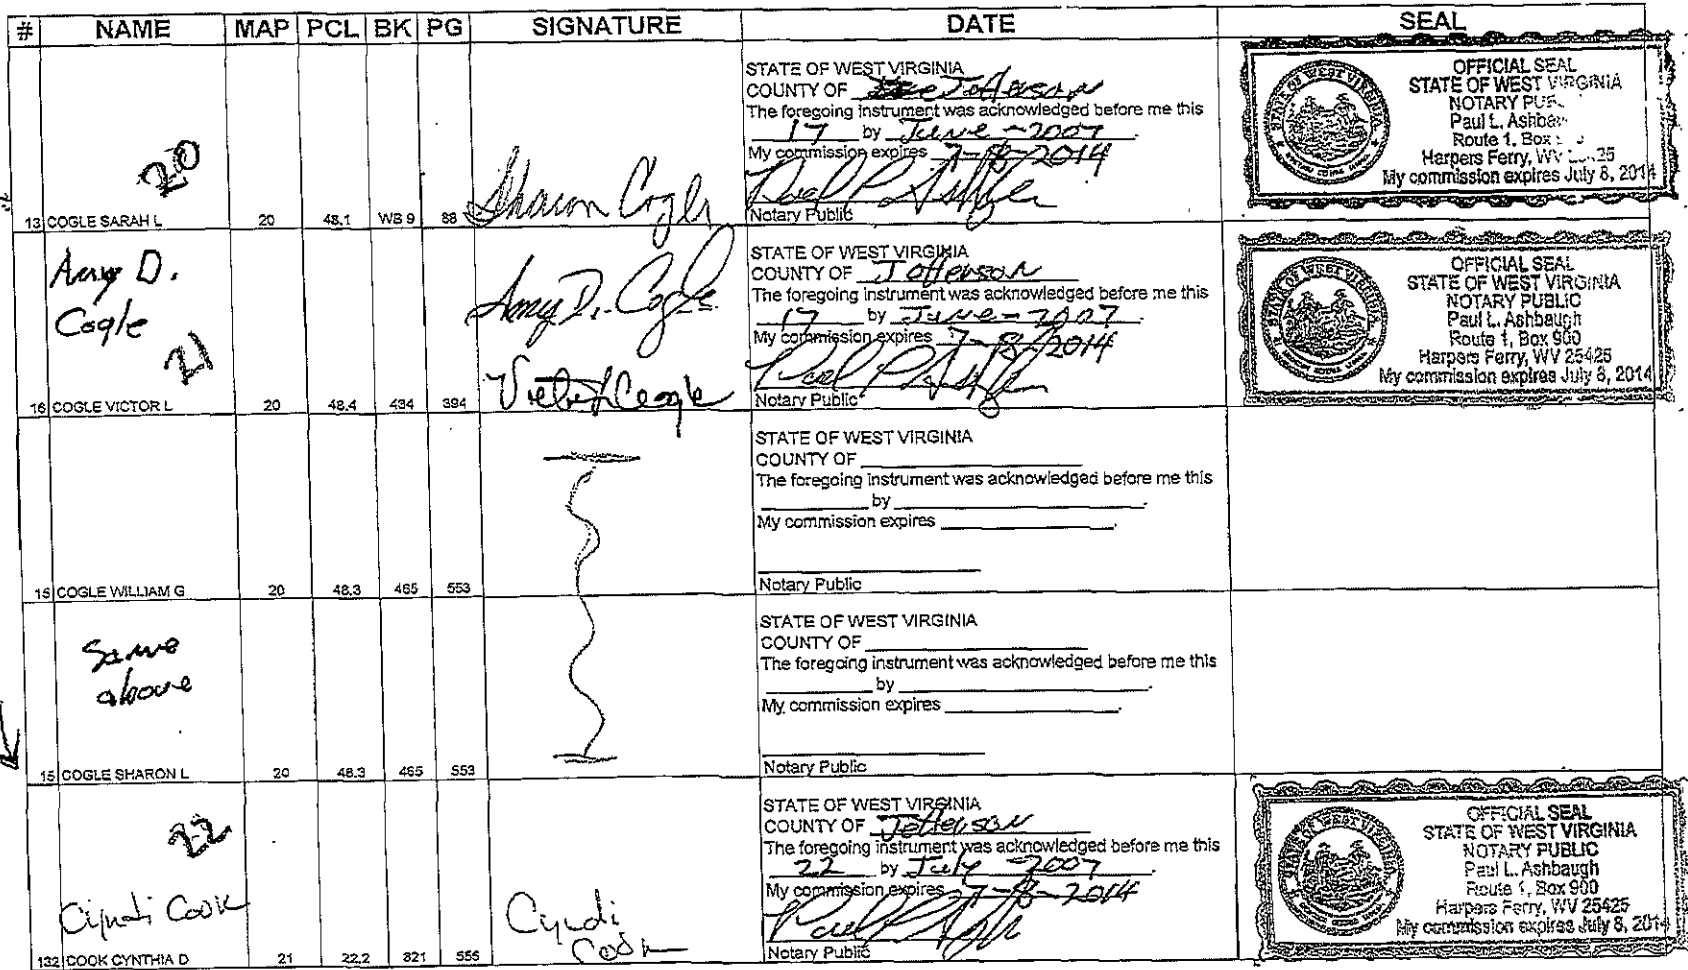 # NAME MAP PCL BK PG SIGNATURE DATE SEAL
20
13 COGLE SARAH L 20 48.1 WB 9 88
Sharon Cogle
STATE OF WEST VIRGINIA
COUNTY OF Jefferson
The foregoing instrument was acknowledged before me this
17 by June - 2007.
My commission expires 7-8-2014
Notary Public
OFFICIAL SEAL
STATE OF WEST VIRGINIA
NOTARY
Paul L.
Route 1, Box
Harpers Ferry, WV
My commission expires July 8, 2014
Amy D.
Cogle
21
16 COGLE VICTOR L 20 48.4 434 394
Amy D. Cogle
STATE OF WEST VIRGINIA
COUNTY OF Jefferson
The foregoing instrument was acknowledged before me this
17 by June - 2007.
My commission expires 7-8-2014
Notary Public
OFFICIAL SEAL
STATE OF WEST VIRGINIA
NOTARY PUBLIC
Paul L. Ashbaugh
Route 1, Box 900
Harpers Ferry, WV 25425
My commission expires July 8, 2014
15 COGLE WILLIAM G 20 48.3 465 553
STATE OF WEST VIRGINIA
COUNTY OF
The foregoing instrument was acknowledged before me this
by
My commission expires
Notary Public
Same
above
15 COGLE SHARON L 20 48.3 465 553
STATE OF WEST VIRGINIA
COUNTY OF
The foregoing instrument was acknowledged before me this
by
My commission expires
Notary Public
22
Cyndi Cook
132 COOK CYNTHIA D 21 22.2 821 556
Cyndi
Cook
STATE OF WEST VIRGINIA
COUNTY OF Jefferson
The foregoing instrument was acknowledged before me this
22 by July - 2007
My commission expires 7-8-2014
Notary Public
OFFICIAL SEAL
STATE OF WEST VIRGINIA
NOTARY PUBLIC
Paul L. Ashbaugh
Route 1, Box 900
Harpers Ferry, WV 25425
My commission expires July 8, 2014